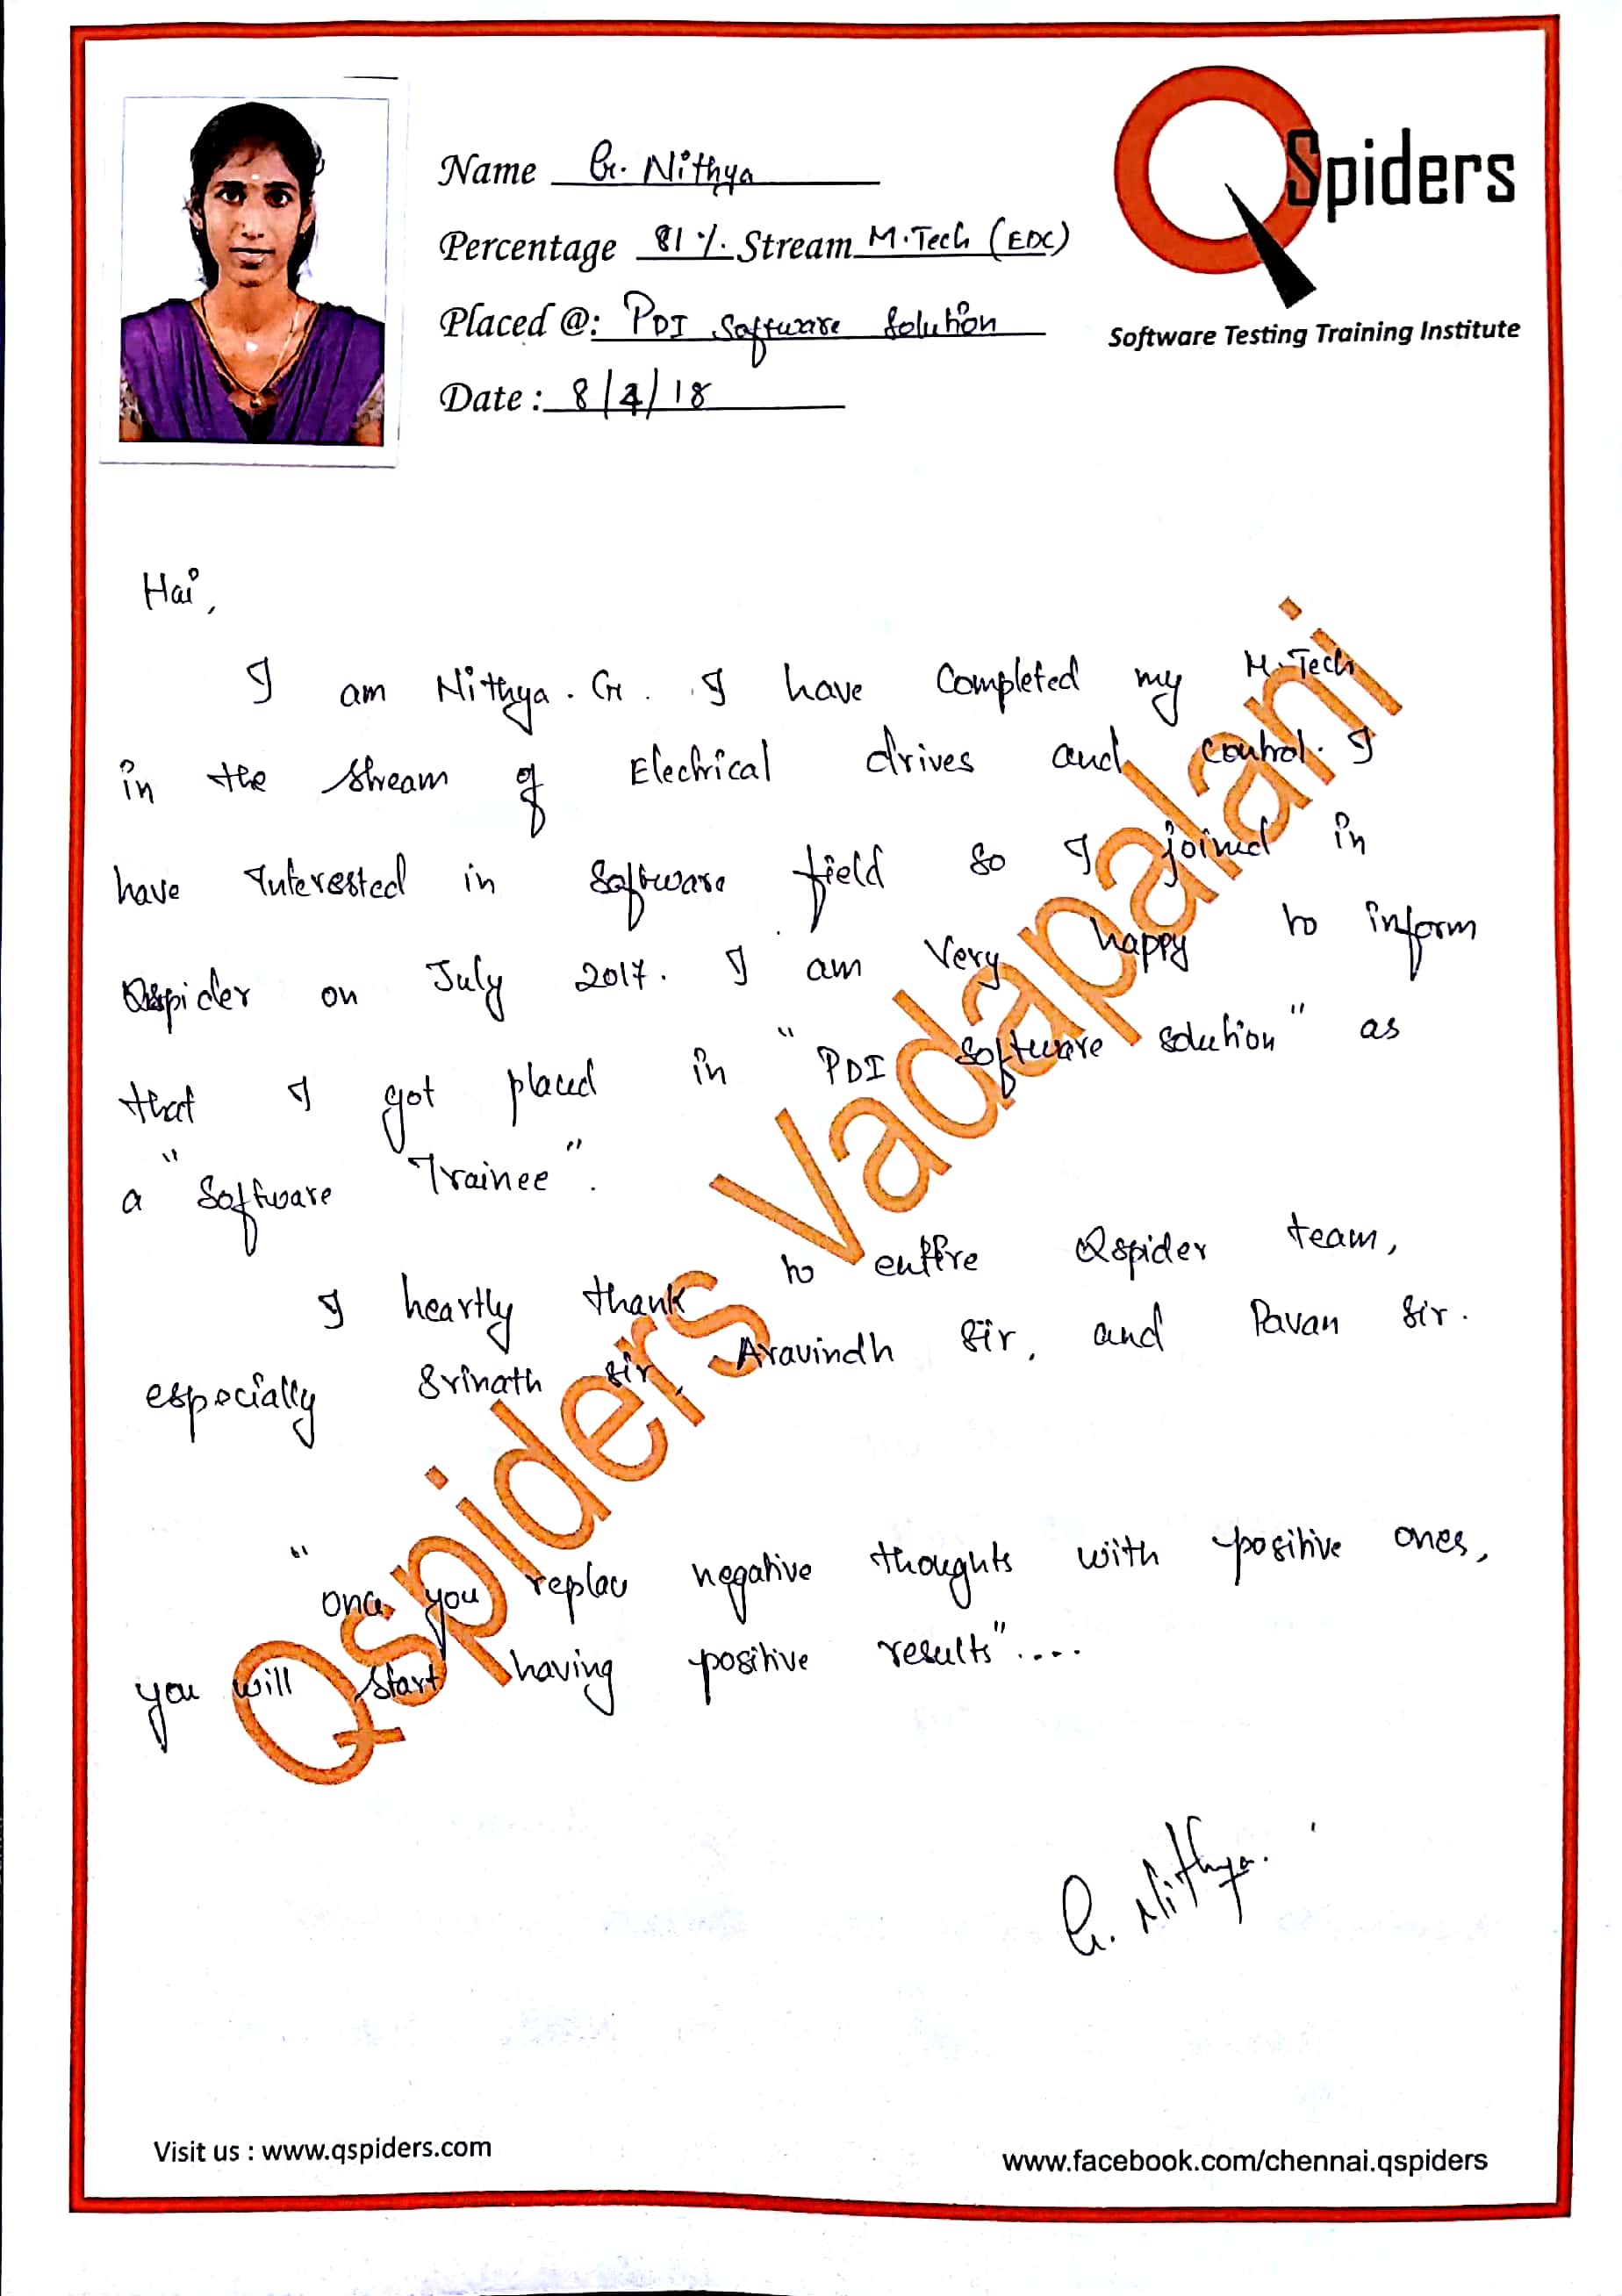 Name G. Nithya
Percentage 81 % Stream M.Tech (EDC)
Placed @: PDI Software Solution
Date : 8/4/18
QSpiders
Software Testing Training Institute
Hai,
I am Nithya. G. I have Completed my M.Tech
in the stream of Electrical drives and control. I
have Interested in Software field so I joined in
Qspider on July 2017. I am Very happy to inform
that I got placed in "PDI Software solution" as
a "Software Trainee".
I heartly thank to entire Qspider team,
especially Srinath sir, Aravindh Sir, and Pavan Sir.
"once you replace negative thoughts with positive ones,
you will start having positive results"....
G. Nithya.
Qspiders Vadapalani
Visit us : www.qspiders.com
www.facebook.com/chennai.qspiders